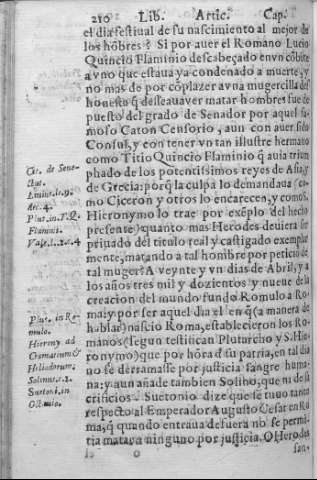 210 Lib. Artic. Cap.
el dia festiual de su nascimiento al mejor de
los hõbres? Si por auer el Romano Lucio
Quincio Flaminio descabeçado en vn cõbite
a vno que estaua ya condenado a muerte, y
no mas de por cõplazer a vna mugercilla des
honesta q̃ desseaua ver matar hombres fue de
puesto del grado de Senador por aquel fa-
moso Caton Censorio, aun con auer sido
Consul, y con tener vn tan illustre hermano
como Titio Quincio Flaminio q̃ auia triun
phado de los potentissimos reyes de Asia, y
de Grecia: porq̃ la culpa lo demandaua (co-
mo Ciceron y otros lo encarecen, y como S.
Hieronymo lo trae por exẽplo del hecho
presente) quanto mas Herodes deuiera ser
priuado del titulo real y castigado exemplar
mente, matando a tal hombre por peticiõ de
tal muger? A veynte y vn dias de Abril, y a
los años tres mil y dozientos y nueue de la
creacion del mundo fundo Romulo a Ro-
ma: y por ser aquel dia el en q̃ (a manera de
hablar) nascio Roma, establecieron los Ro-
manos (segun testifican Plutarcho y S. Hie
ronymo) que por hõra d̃ su patria, en tal dia
no se derramasse por justicia sangre huma-
na: y aun añade tambien Solino, que ni de sa
crificios. Suetonio dize que se tuuo tanto
respecto al Emperador Augusto Cesar en Ro
ma, q̃ quando entraua de fuera no se permi-
tia matar a ninguno por justicia. O Herodes
O
san-
Cic. de Sene-
ctut.
Liuius.li.9.
dec.4.
Plut. in T.Q.
Flamini.
Vale.l.2.c.4
Plut. in Ro-
mulo.
Hierony. ad
Chromatium &
Heliodorum.
Solinus.c.2.
Sueton. in
Octauio.